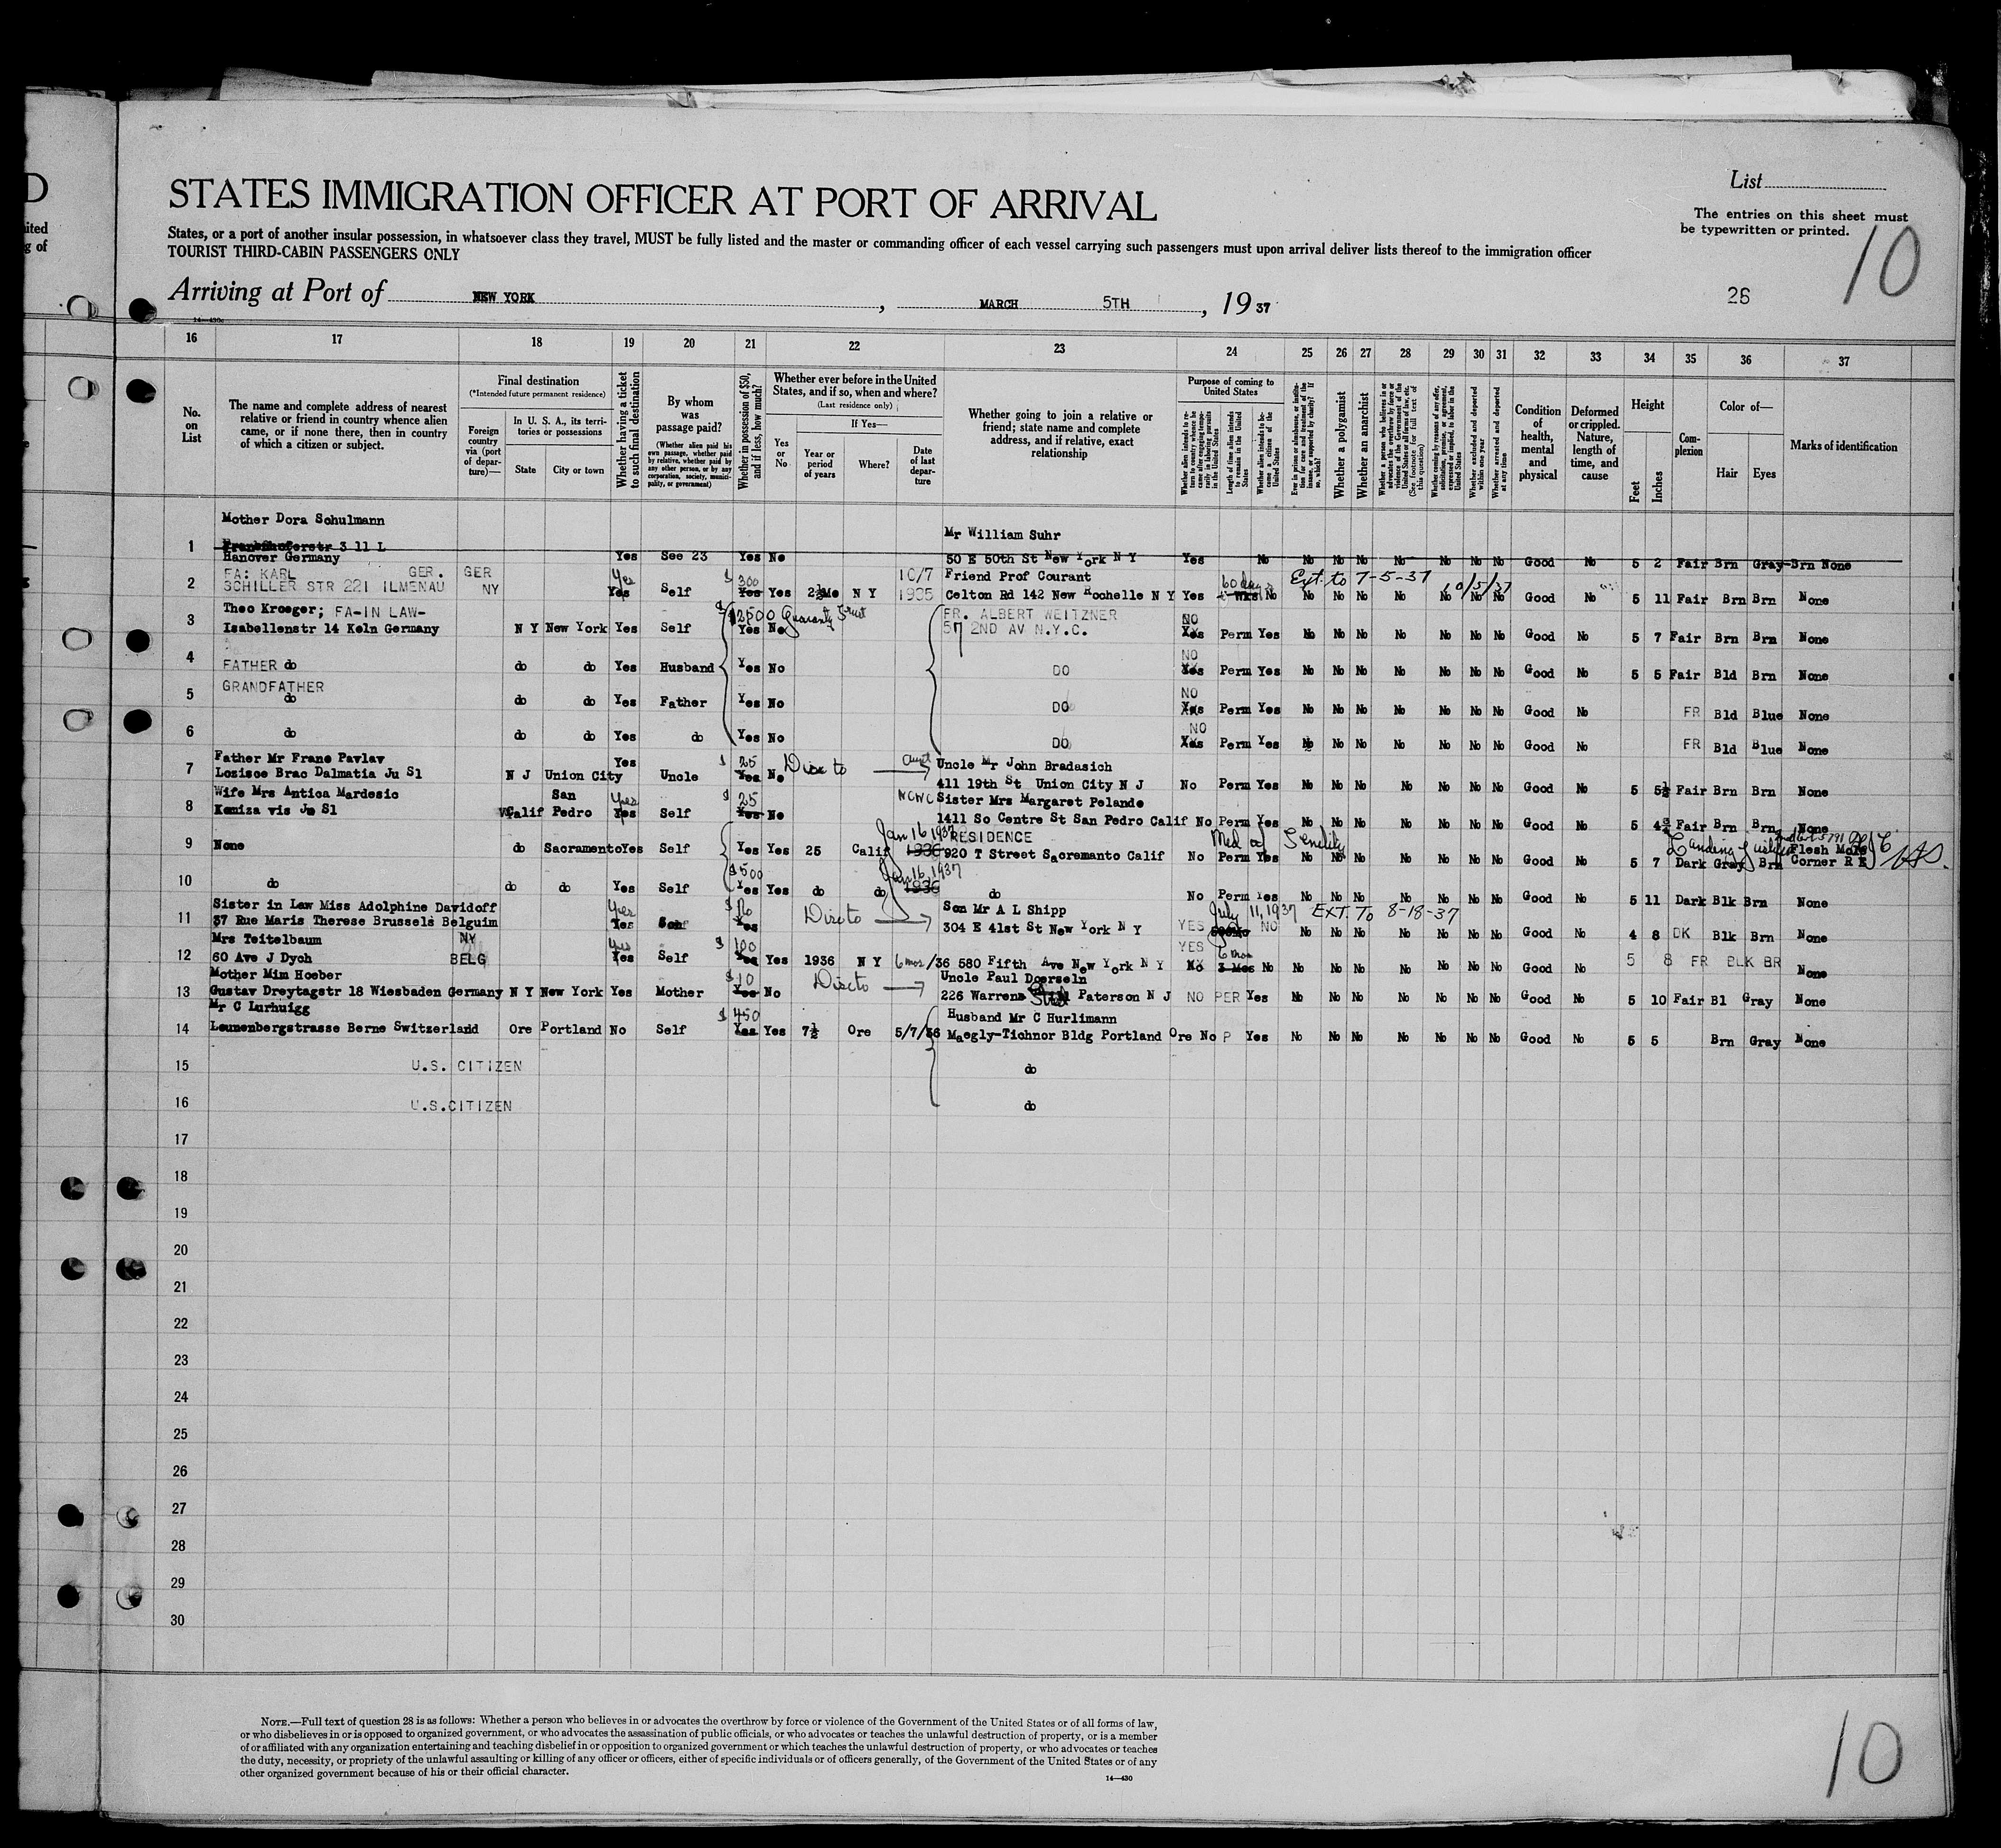 D
ited
g of
STATES IMMIGRATION OFFICER AT PORT OF ARRIVAL
List
The entries on this sheet must
be typewritten or printed.
10
States, or a port of another insular possession, in whatsoever class they travel, MUST be fully listed and the master or commanding officer of each vessel carrying such passengers must upon arrival deliver lists thereof to the immigration officer
TOURIST THIRD-CABIN PASSENGERS ONLY
Arriving at Port of NEW YORK, MARCH 5TH, 19 37
26
16 17 18 19 20 21 22 23 24 25 26 27 28 29 30 31 32 33 34 35 36 37
No. on List
The name and complete address of nearest relative or friend in country whence alien came, or if none there, then in country of which a citizen or subject.
Final destination
(*Intended future permanent residence)
Foreign country via (port of departure)—
In U. S. A., its territories or possessions
State
City or town
Whether having a ticket to such final destination
By whom was passage paid?
(Whether alien paid his own passage, whether paid by relative, whether paid by any other person, or by any corporation, society, municipality, or government)
Whether in possession of $50, and if less, how much?
Whether ever before in the United States, and if so, when and where?
(Last residence only)
Yes or No
If Yes—
Year or period of years
Where?
Date of last departure
Whether going to join a relative or friend; state name and complete address, and if relative, exact relationship
Purpose of coming to United States
Whether alien intends to return to country whence he came after engaging temporarily in laboring pursuits in the United States
Length of time alien intends to remain in the United States
Whether alien intends to become a citizen of the United States
Ever in prison or almshouse, or institution for care and treatment of the insane, or supported by charity? If so, which?
Whether a polygamist
Whether an anarchist
Whether a person who believes in or advocates the overthrow by force or violence of the Government of the United States or all forms of law, etc. (See footnote for full text of this question)
Whether coming by reasons of any offer, solicitation, promise, or agreement, expressed or implied, to labor in the United States
Whether excluded and deported within one year
Whether arrested and deported at any time
Condition of health, mental and physical
Deformed or crippled. Nature, length of time, and cause
Height
Feet
Inches
Complexion
Color of—
Hair
Eyes
Marks of identification
Mother Dora Schulmann
Mr William Suhr
1 3 11 L
Hanover Germany Yes See 23 Yes No 50 E 50th St New York N Y Yes No No No No No No No No Good No 5 2 Fair Brn Gray-Brn None
FA: KARL GER. GER Yes $ 300 10/7 Friend Prof Courant 60 days Ext. to 7-5-37 10/5/37
2 SCHILLER STR 221 ILMENAU NY Yes Self Yes Yes 2½Mo N Y 1935 Celton Rd 142 New Rochelle N Y Yes Wks No No No No No No No No Good No 5 11 Fair Brn Brn None
Theo Kroeger; FA-IN LAW- $2500 Guaranty Trust FR. ALBERT WEITZNER NO
3 Isabellenstr 14 Koln Germany N Y New York Yes Self Yes No 57 2ND AV N.Y.C. Yes Perm Yes No No No No No No No Good No 5 7 Fair Brn Brn None
4 FATHER do do do Yes Husband Yes No DO NO Yes Perm Yes No No No No No No No Good No 5 5 Fair Bld Brn None
GRANDFATHER
5 do do do Yes Father Yes No DO NO Yes Perm Yes No No No No No No No Good No FR Bld Blue None
6 do do do Yes do Yes No DO NO Yes Perm Yes No No No No No No No Good No FR Bld Blue None
Father Mr Frane Pavlav Yes $ 25 Uncle Mr John Bradasich
7 Lozisce Brac Dalmatia Ju Sl N J Union City Uncle Yes No 411 19th St Union City N J No Perm Yes No No No No No No No Good No 5 5½ Fair Brn Brn None
Wife Mrs Antica Mardesic San Yes $ 25 Sister Mrs Margaret Pelande
8 Komiza vis Ju Sl Calif Pedro Yes Self Yes No 1411 So Centre St San Pedro Calif No Perm Yes No No No No No No No Good No 5 Fair Brn Brn None
Jan 16 1937 RESIDENCE Med cf Senility
9 None do Sacramento Yes Self Yes Yes 25 Calif 1936 920 T Street Sacremanto Calif No Perm Yes No No No No No No No Good No 5 7 Dark Gray Brn Flesh Mole Corner R E
$500 Jan 16, 1937
10 do do do Yes Self Yes Yes do do 1936 do No Perm Yes No No No No No No No Good No 5 11 Dark Blk Brn None
Sister in Law Miss Adolphine Davidoff Yes Son Mr A L Shipp July 11, 1937 EXT. TO 8-18-37
11 37 Rue Maris Therese Brussels Belguim Yes Son Yes 304 E 41st St New York N Y YES NO No No No No No No No Good No 4 8 DK Blk Brn None
Mrs Teitelbaum NY Yes $ 100 YES 6 mos
12 60 Ave J Dych BELG Yes Self Yes Yes 1936 N Y 6 mos/36 580 Fifth Ave New York N Y No 3 Mos No No No No No No No No Good No 5 8 FR BLK BR None
Mother Mim Hoeber $10 Uncle Paul Doerseln
13 Gustav Dreytagstr 18 Wiesbaden Germany N Y New York Yes Mother Yes No 226 Warrens Paterson N J NO PER Yes No No No No No No No Good No 5 10 Fair Bl Gray None
Mr C Lurhuigg $ 450 Husband Mr C Hurlimann
14 Leunenbergstrasse Berne Switzerland Ore Portland No Self Yes Yes 7½ Ore 5/7/36 Maegly-Tichnor Bldg Portland Ore No P Yes No No No No No No No Good No 5 5 Brn Gray None
15 U.S. CITIZEN do
16 U.S.CITIZEN do
17
18
19
20
21
22
23
24
25
26
27
28
29
30
NOTE.—Full text of question 28 is as follows: Whether a person who believes in or advocates the overthrow by force or violence of the Government of the United States or of all forms of law,
or who disbelieves in or is opposed to organized government, or who advocates the assassination of public officials, or who advocates or teaches the unlawful destruction of property, or is a member
of or affiliated with any organization entertaining and teaching disbelief in or opposition to organized government or which teaches the unlawful destruction of property, or who advocates or teaches
the duty, necessity, or propriety of the unlawful assaulting or killing of any officer or officers, either of specific individuals or of officers generally, of the Government of the United States or of any
other organized government because of his or their official character.
14—430
10